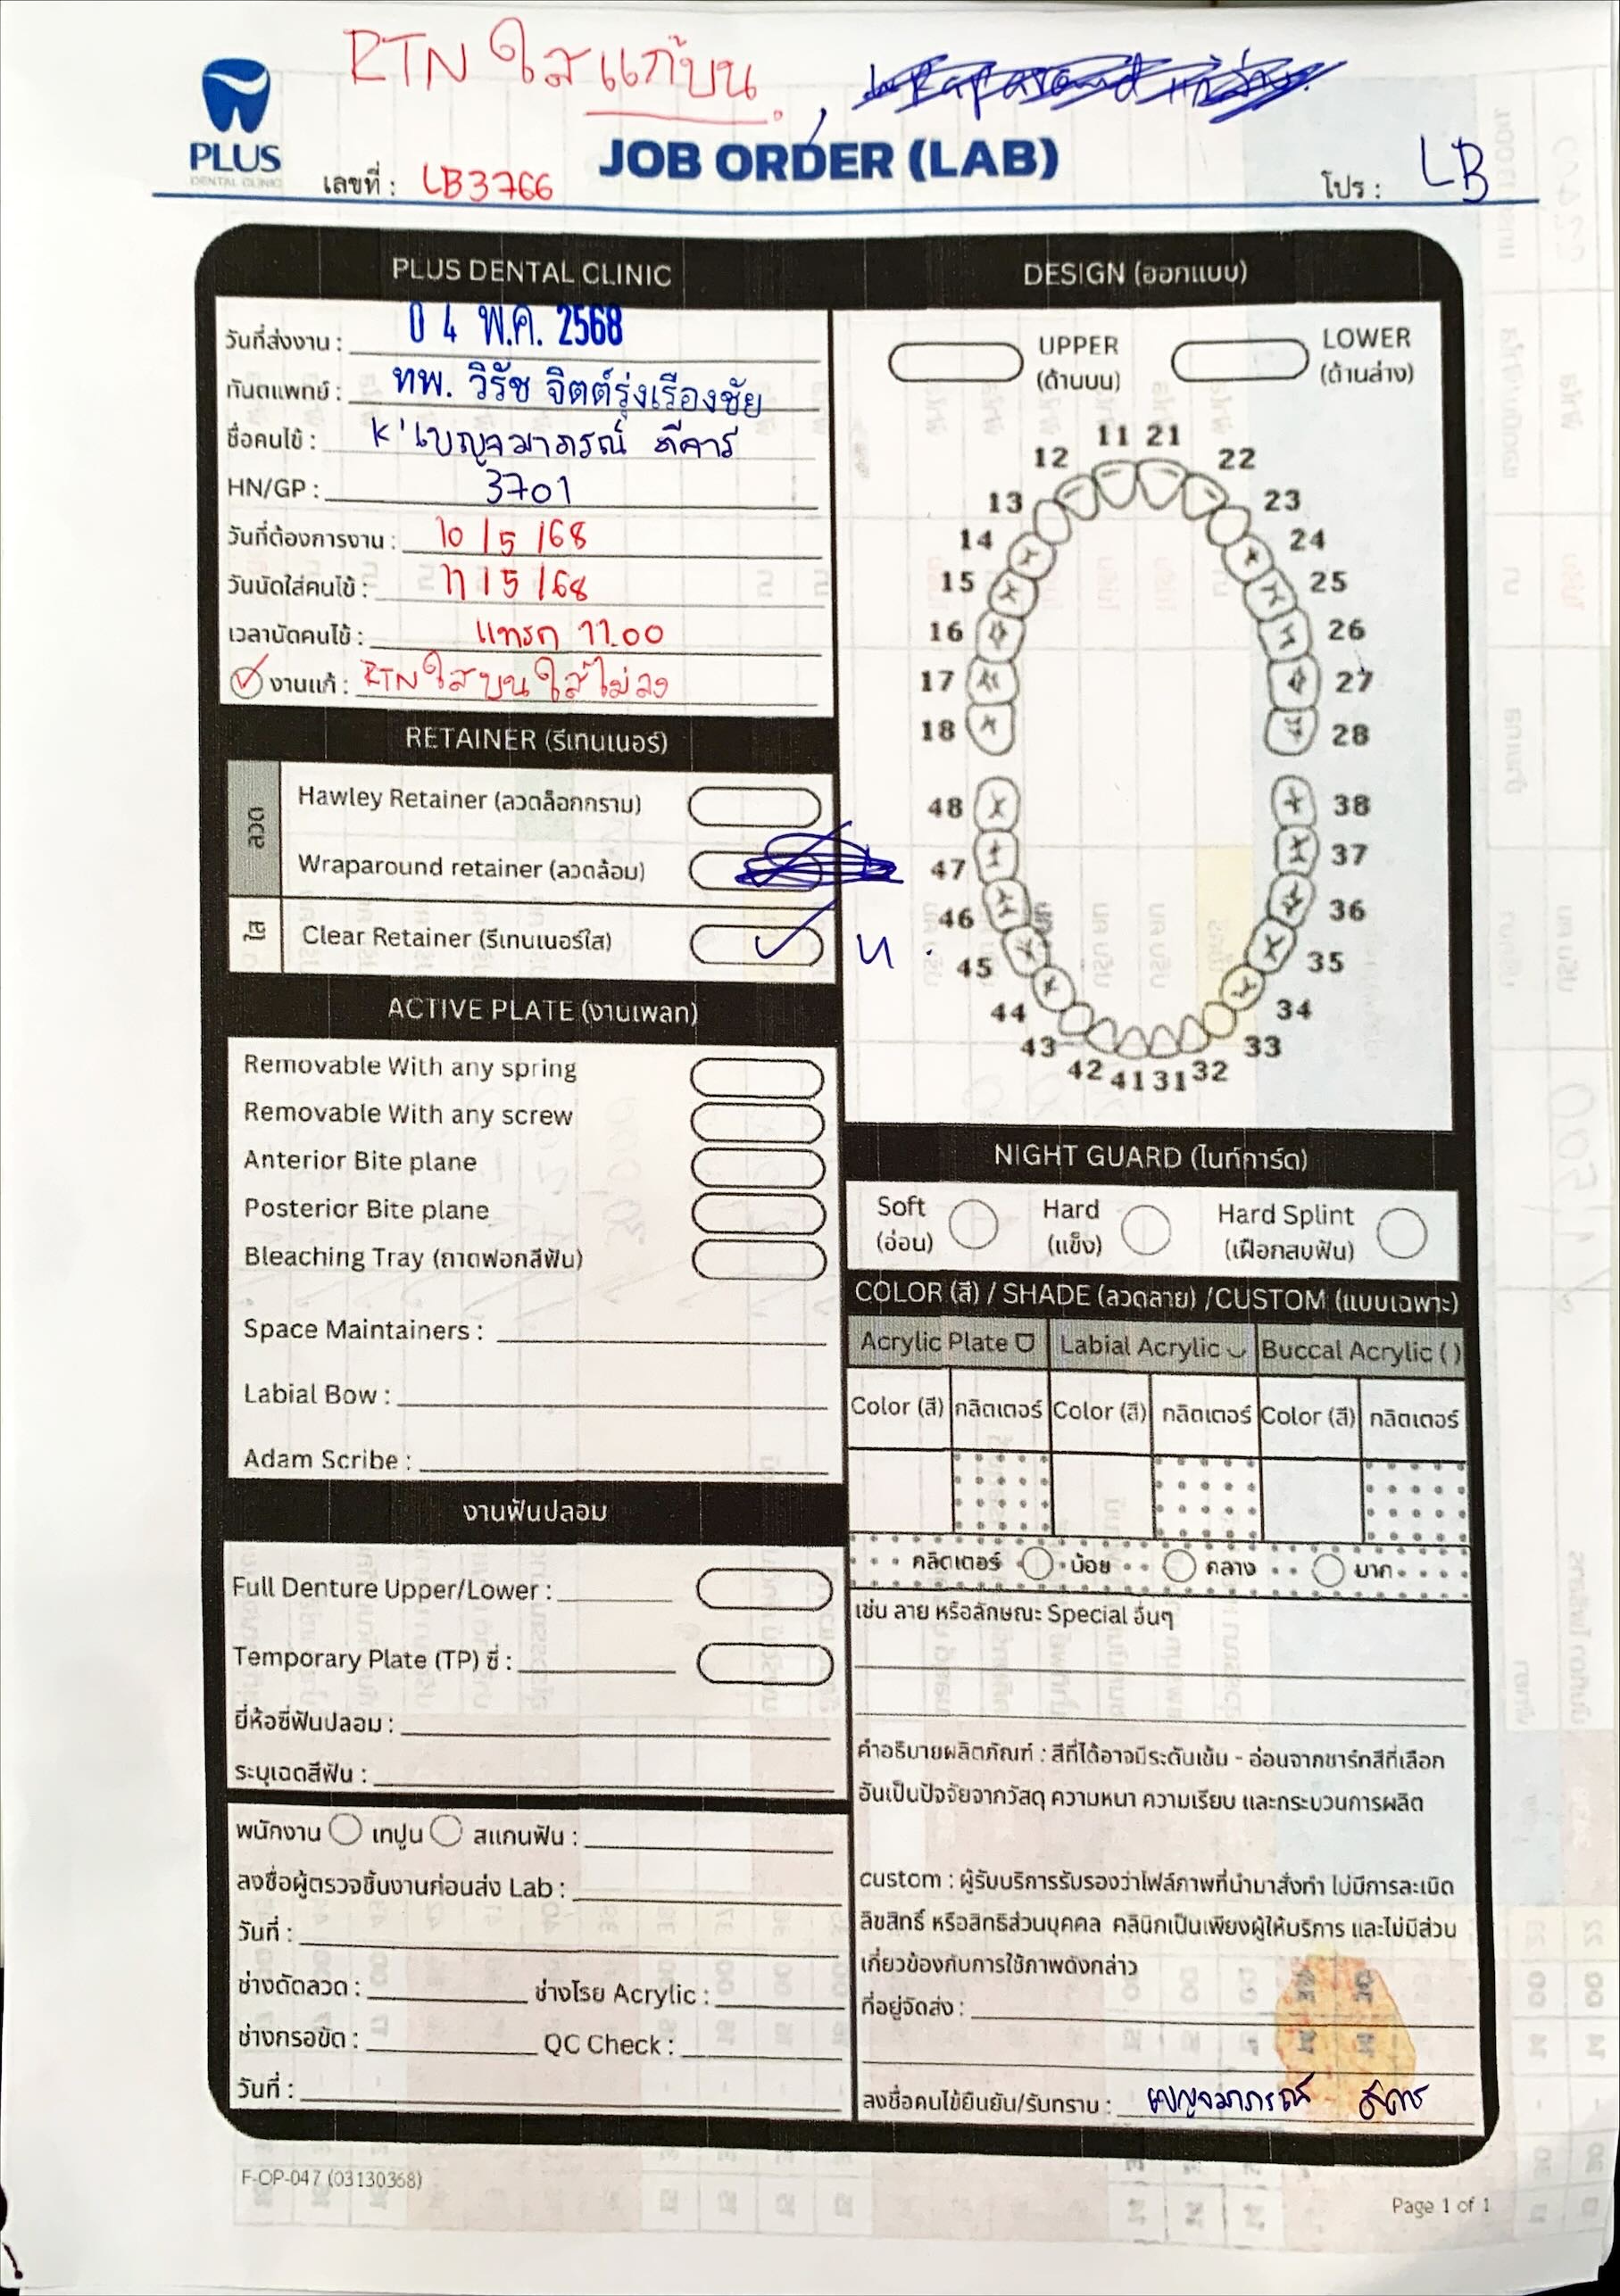 RTN ใส แก้บน.
PLUS
DENTAL CLINIC
JOB ORDER (LAB)
เลขที่ : LB3766
โปร : LB
PLUS DENTAL CLINIC
วันที่ส่งงาน : 04 พ.ค. 2568
ทันตแพทย์ : ทพ. วิรัช จิตต์รุ่งเรืองชัย
ชื่อคนไข้ : K' เบญจมาภรณ์
HN/GP : 3701
วันที่ต้องการงาน : 10/5/68
วันนัดใส่คนไข้ : 11/5/68
เวลานัดคนไข้ : แทรก 11.00
งานแก้ : RTN ใส บน ใส่ไม่ลง
RETAINER (รีเทนเนอร์)
ลวด
Hawley Retainer (ลวดล็อกกราม)
Wraparound retainer (ลวดล้อม)
ใส
Clear Retainer (รีเทนเนอร์ใส) บ.
ACTIVE PLATE (งานเพลท)
Removable With any spring
Removable With any screw
Anterior Bite plane
Posterior Bite plane
Bleaching Tray (ถาดฟอกสีฟัน)
Space Maintainers :
Labial Bow :
Adam Scribe :
งานฟันปลอม
Full Denture Upper/Lower :
Temporary Plate (TP) ซี่ :
ยี่ห้อซี่ฟันปลอม :
ระบุเฉดสีฟัน :
พนักงาน เทปูน สแกนฟัน :
ลงชื่อผู้ตรวจชิ้นงานก่อนส่ง Lab :
วันที่ :
ช่างดัดลวด : ช่างโรย Acrylic :
ช่างกรอขัด : QC Check :
วันที่ :
DESIGN (ออกแบบ)
UPPER
(ด้านบน)
LOWER
(ด้านล่าง)
11 21
12 22
13 23
14 24
15 25
16 26
17 27
18 28
48 38
47 37
46 36
45 35
44 34
43 33
42 41 31 32
NIGHT GUARD (ไนท์การ์ด)
Soft
(อ่อน)
Hard
(แข็ง)
Hard Splint
(เฝือกสบฟัน)
COLOR (สี) / SHADE (ลวดลาย) /CUSTOM (แบบเฉพาะ)
Acrylic Plate Labial Acrylic Buccal Acrylic ( )
Color (สี) กลิตเตอร์ Color (สี) กลิตเตอร์ Color (สี) กลิตเตอร์
กลิตเตอร์ น้อย กลาง มาก
เช่น ลาย หรือลักษณะ Special อื่นๆ
คำอธิบายผลิตภัณฑ์ : สีที่ได้อาจมีระดับเข้ม - อ่อนจากชาร์ทสีที่เลือก
อันเป็นปัจจัยจากวัสดุ ความหนา ความเรียบ และกระบวนการผลิต
custom : ผู้รับบริการรับรองว่าไฟล์ภาพที่นำมาสั่งทำ ไม่มีการละเมิด
ลิขสิทธิ์ หรือสิทธิส่วนบุคคล คลินิกเป็นเพียงผู้ให้บริการ และไม่มีส่วน
เกี่ยวข้องกับการใช้ภาพดังกล่าว
ที่อยู่จัดส่ง :
ลงชื่อคนไข้ยืนยัน/รับทราบ : เบญจมาภรณ์
F-OP-047 (03130368)
Page 1 of 1